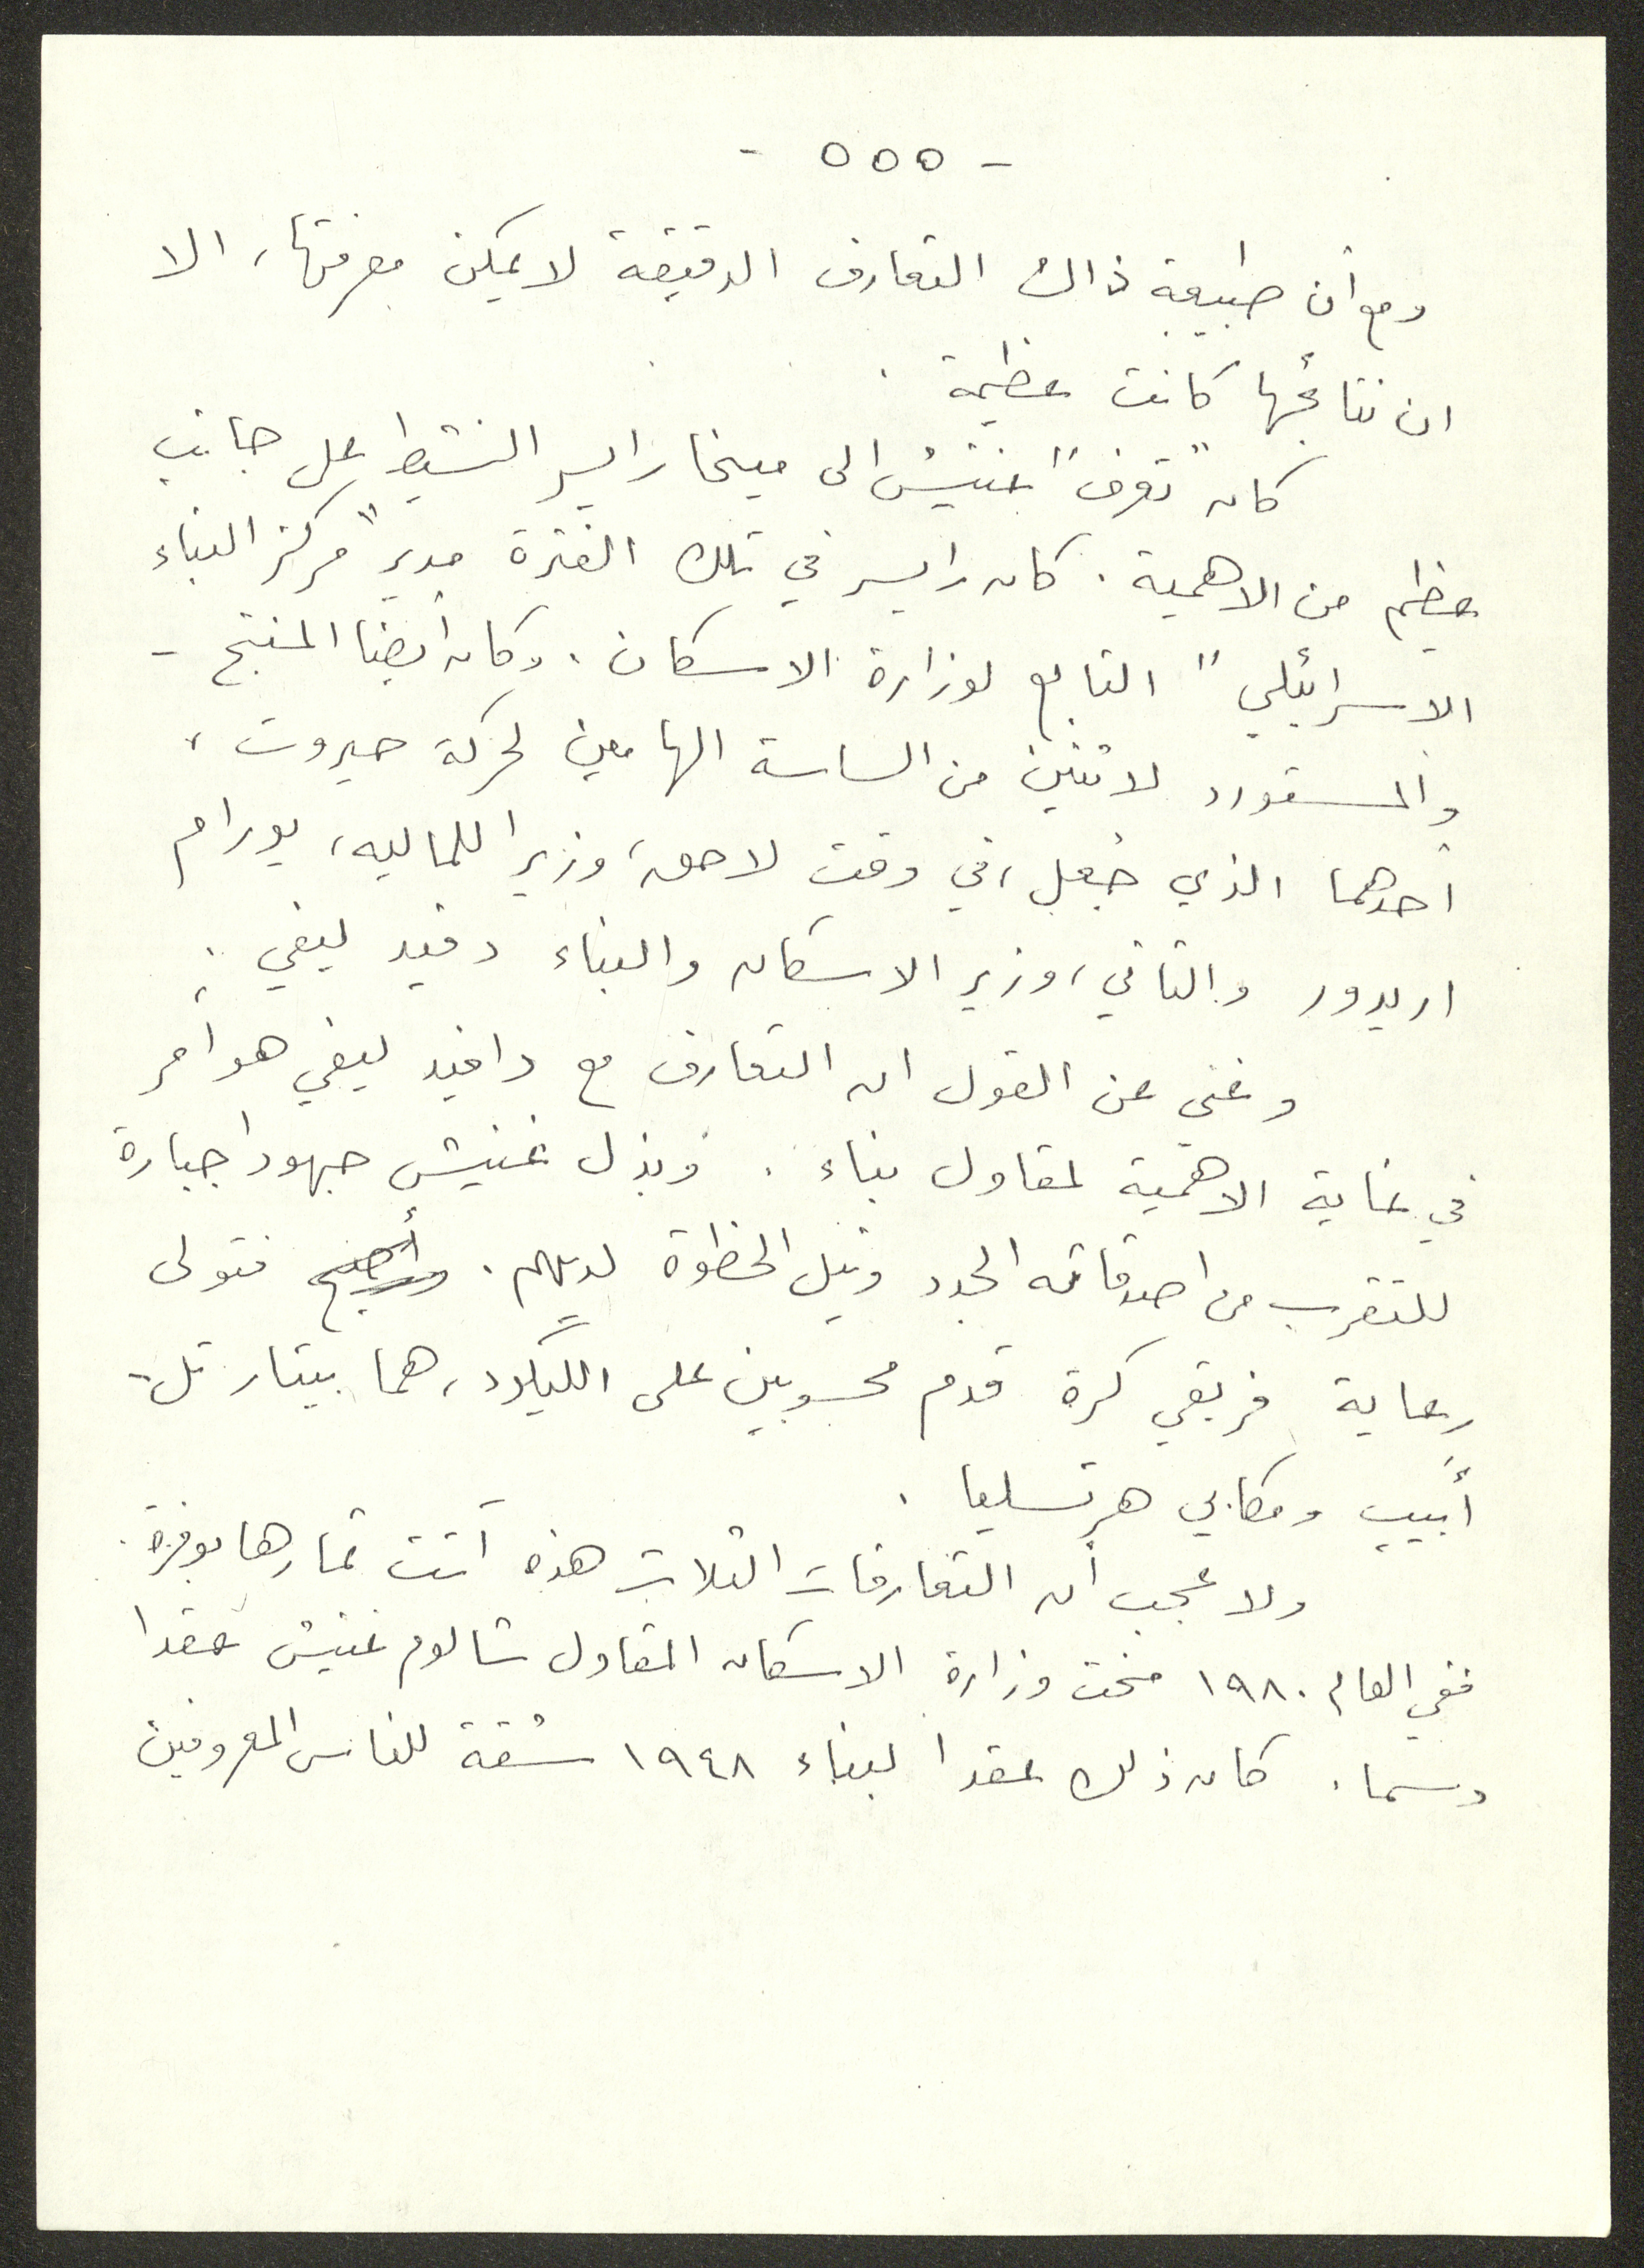 - ٥٥٥ -
ومع أن طبيعة ذاك التعارف الدقيقة لا يمكن معرفتها، الا
ان نتائجها كانت عظيمة.
كان "تعرف" غنيش الى ميخا رايسر النشيط على جانب
عظيم من الاهمية. كان رايسر في تلك الفترة مدير "مركز البناء
الاسرائيلي" التابع لوزارة الاسكان. وكان أيضا المنتج -
والمستورد لاثنين من الساسة الهامين لحركة حيروت،
أحدهما الذي جُعل، في وقت لاحق، وزيرا للماليه، يورام
اريدور والثاني، وزير الاسكان والبناء دفيد ليفي.
وغني عن القول ان التعارف مع دافيد ليفي هو أمر
في غاية الاهمية لمقاول بناء. وبذل غنيش جهودا جبارة
للتقرب من اصدقائه الجدد ونيل الحظوة لديهم. وأصبح فتولى
رعاية فريقي كرة قدم محسوبين على الليكود، هما بيتار تل-
أبيب ومكابي هرتسليا.
ولا عجب أن التعارفات الثلاث هذه آتت ثمارها بوفرة.
ففي العام ١٩٨٠ منحت وزارة الاسكان المقاول شالوم غنيش عقدا
دسما. كان ذلك عقدا لبناء ١٩٤٨ شقة للناس المعروفين